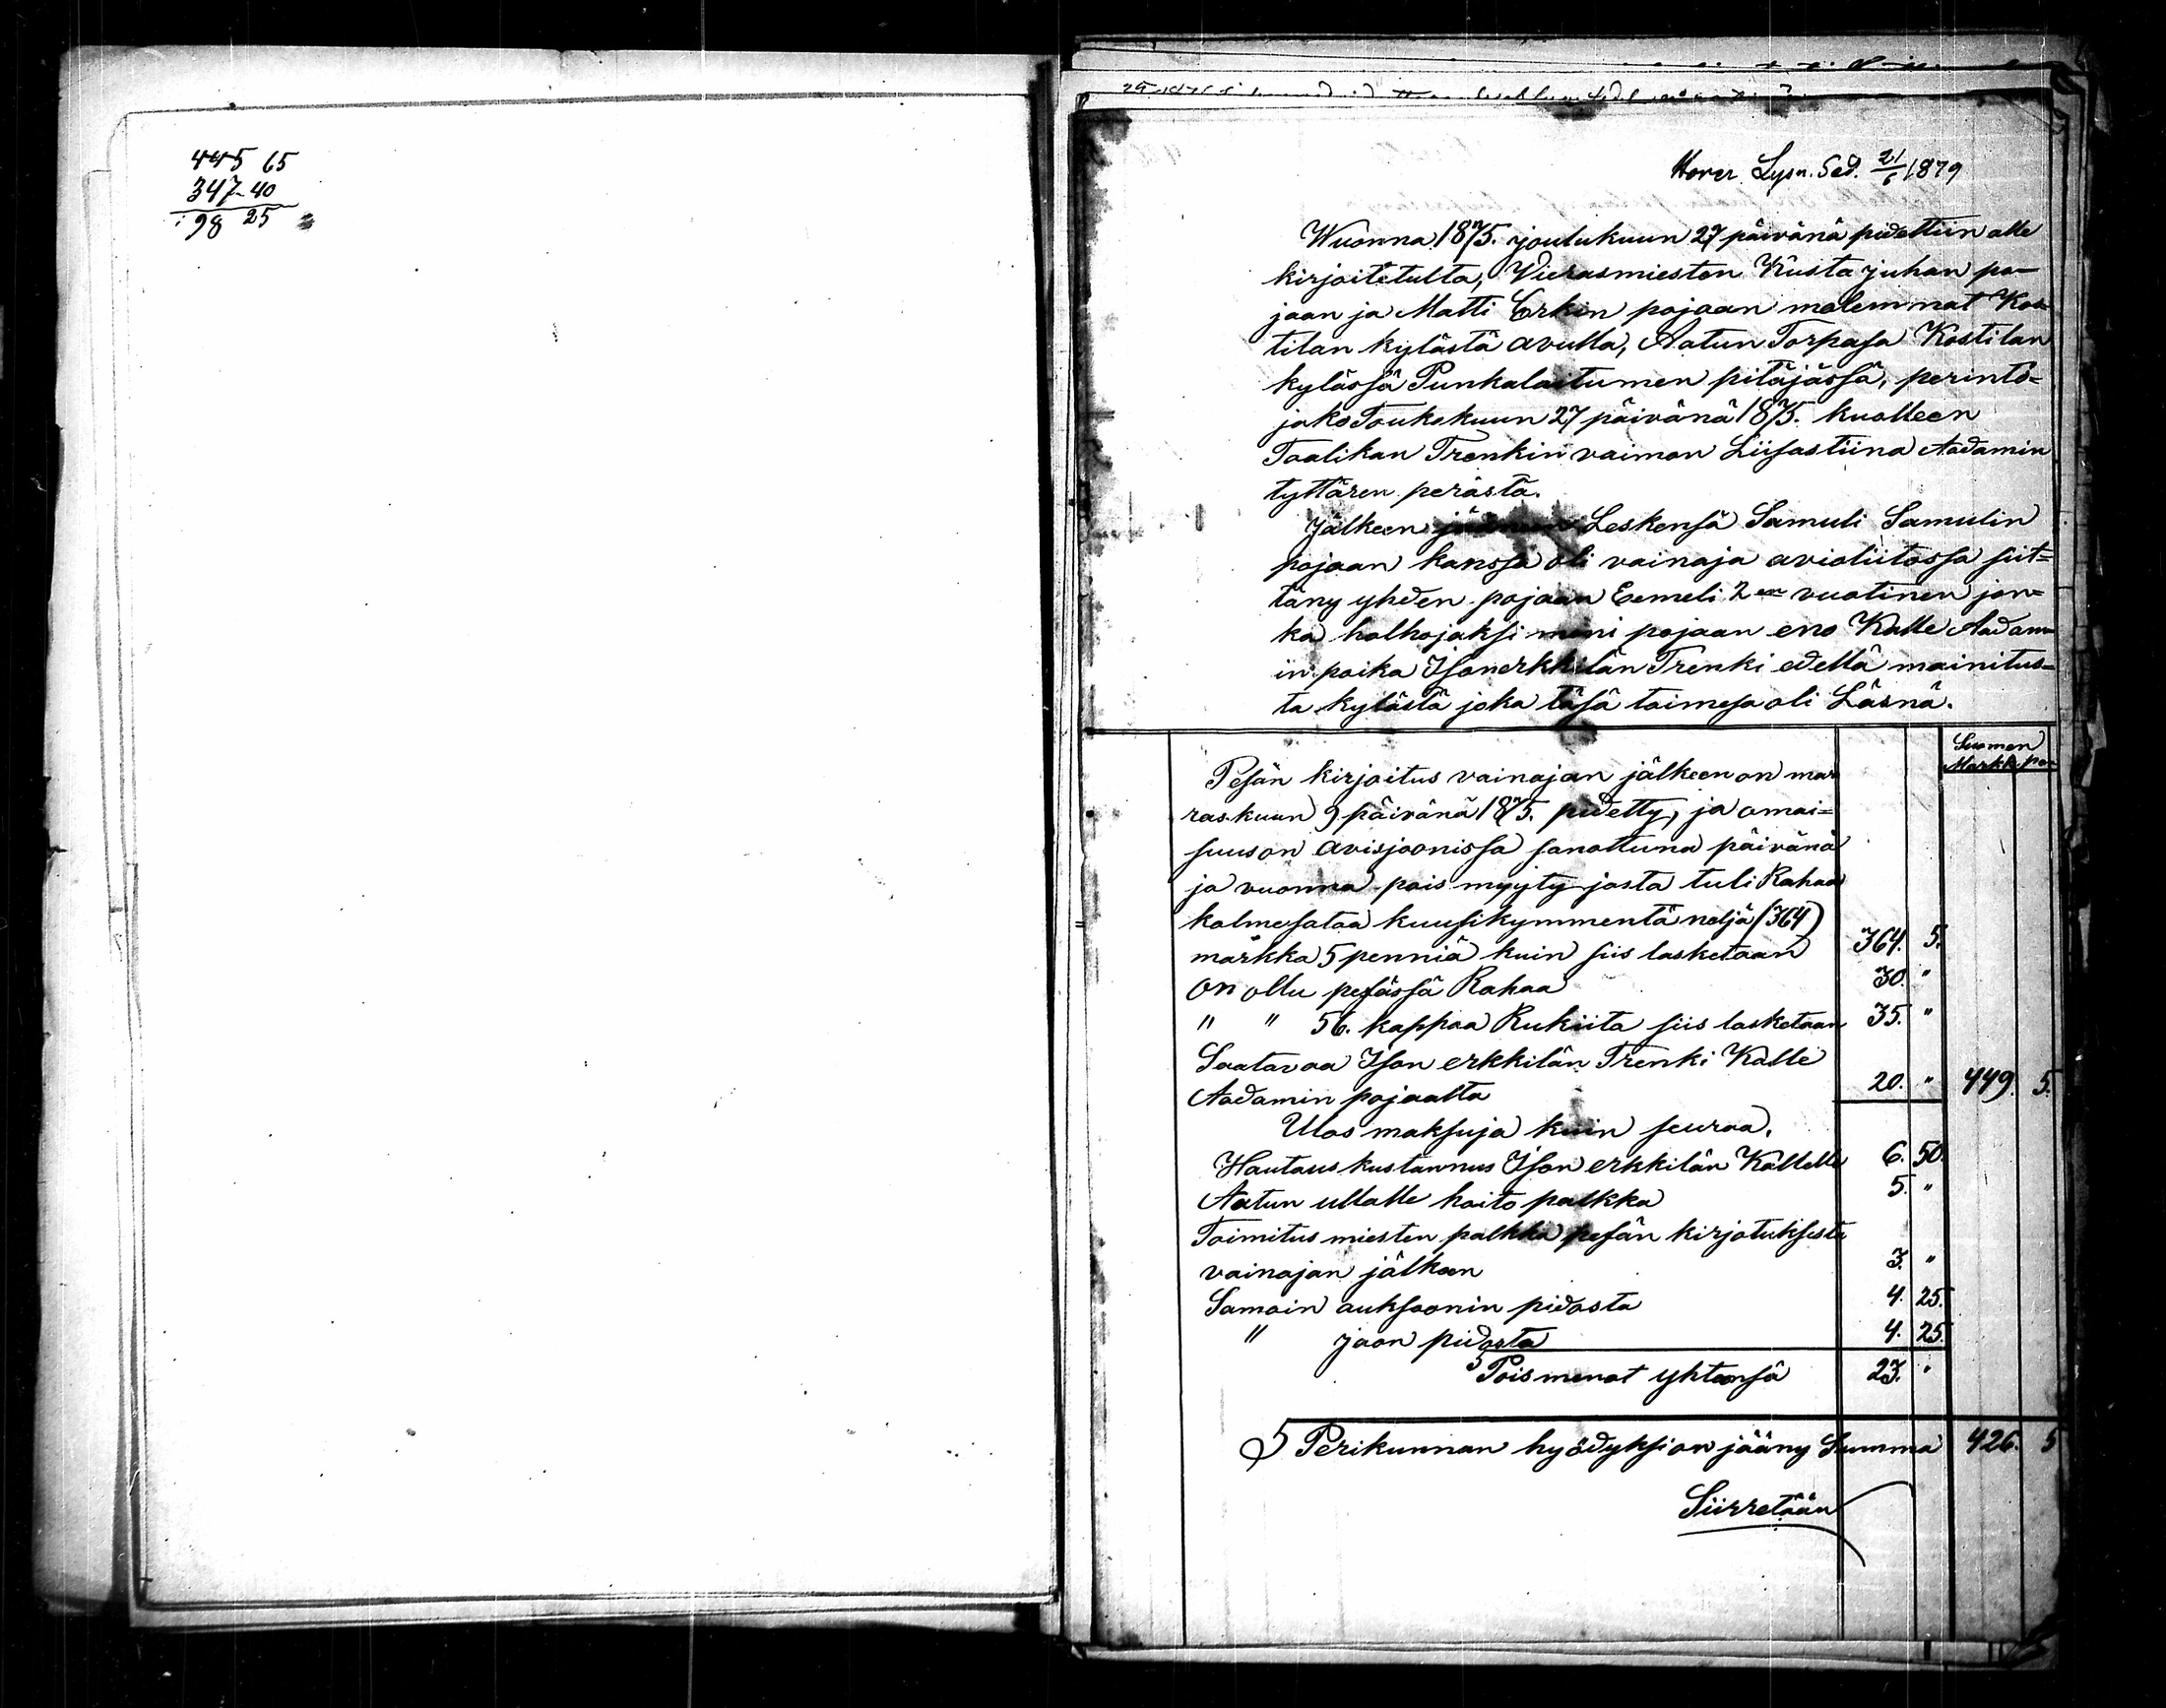 445 65
347-40
98 25
Lysn. Sed. 21/6 1879
Wuonna 1875. joulukuun 27 päivänä pidettiin alle
kirjoitetulta, Vierasmiesten Kusta juhan po-
jaan ja Matti Erkin pojaan molemmat Kos-
tilan kylästä avulla, Aatun Torpasa Kostilan
kylässä Punkalaitumen pitäjässä, perintö-
jako Toukokuun 27 päivänä 1875. kuolleen
Taalikan Trenkin vaimon Liisastiina Aadamin
tyttären perästä.
Jälkeen Leskensä Samuli Samulin
pojaan kanssa oli vainaja avioliitossa siit=
täny yhden pojaan Eemeli 2en vuotinen jon=
ka holhojaksi meni pojaan eno Kalle Aadam
in poika Isonerkkilän Trenki edellä mainitus=
ta kylästä joka täsä toimesa oli Läsnä.
Suomen
Markk. pe
Pesän kirjoitus vainajan jälkeen on mar
raskuun 9 päivänä 1875. pidetty, ja omai=
suus on avisjoonissa sanottuna päivänä
ja vuonna pois myyty josta tuli Rahaa
kolmesataa kuusikymmentä neljä (364)
markka 5 penniä kuin siis lasketaan 364. 5.
on ollu pesässä Rahaa 30. "
" " 56. kappaa Rukiita siis lasketaan 35. "
Saatavaa Ison erkkilän Trenki Kalle
Aadamin pojaalta 20. " 449. 5.
Ulos maksuja kuin seuraa.
Hautaus kustannus Ison erkkilän Kallelle 6. 50.
Aatun ullalle hoito palkka 5. "
Toimitus miesten palkka pesän kirjotuksesta
vainajan jälkeen 3. "
Samoin auksoonin pidosta 4. 25.
" jaon pidosta 4. 25.
Pois menot yhteensä 23. "
Perikunnan hyödyksi on jääny Summa 426. 5
Siirretään